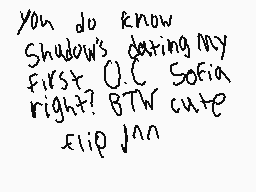 You do know
Shadow's dating my
first O.C Sofia
right? BTW cute
flip J^^